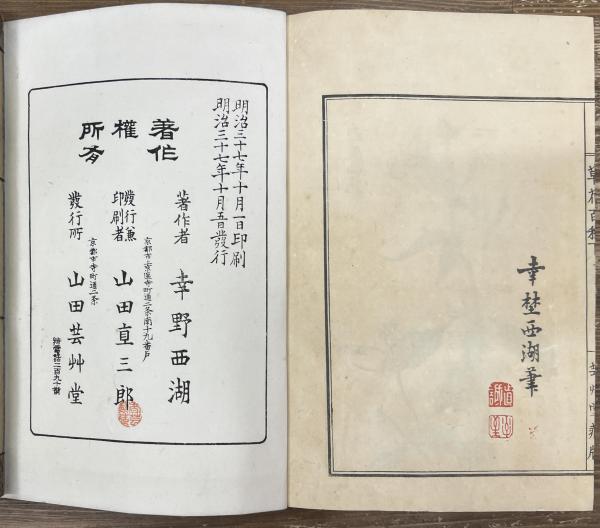 幸埜西湖筆
草花百種
芸艸堂蔵版
明治三十七年十月一日印刷
明治三十七年十月五日發行
著作權所有
著作者 幸野西湖
京都市上京區寺町通二条南十九番戸
發行兼印刷者 山田直三郎
京都市寺町通二条
發行所 山田芸艸堂